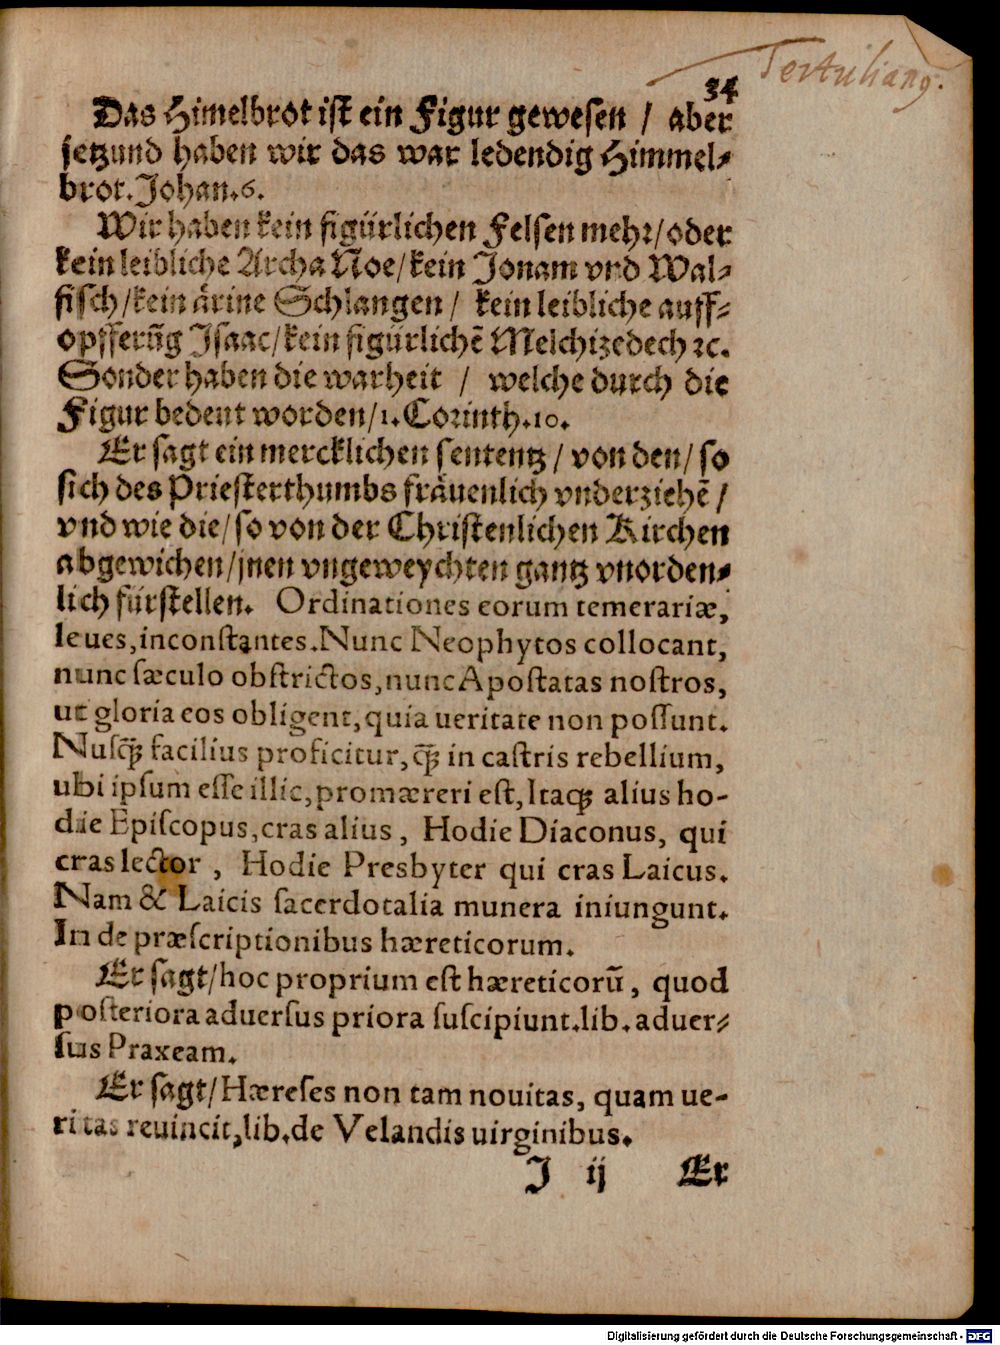 Tertulianꝰ.
34
Das Himelbrot ist ein Figur gewesen / aber
jetzund haben wir das war ledendig Himmel⸗
brot. Johan.6.
Wir haben kein figürlichen Felsen mehr/oder
kein leibliche Archa Noe/kein Jonam vnd Wal⸗
fisch/kein ärine Schlangen / kein leibliche auff⸗
opfferūg Isaac/kein figürlichē Melchizedech ꝛc.
Sonder haben die warheit / welche durch die
Figur bedeut worden/1. Corinth.10.
Er sagt ein mercklichen sententz / von den/ so
sich des Priesterthumbs fräuenlich vnderziehē /
vnd wie die/ so von der Christenlichen Kirchen
abgewichen/jnen vngeweychten gantz vnorden⸗
lich fürstellen. Ordinationes eorum temerariæ,
leues, inconstantes. Nunc Neophytos collocant,
nunc sæculo obstrictos, nunc Apostatas nostros,
ut gloria eos obligent, quia ueritate non possunt.
Nusq̃ꝫ facilius proficitur, q̃ꝫ in castris rebellium,
ubi ipsum esse illic, promæreri est, Itaqꝫ alius ho-
die Episcopus, cras alius, Hodie Diaconus, qui
cras lector, Hodie Presbyter qui cras Laicus.
Nam & Laicis sacerdotalia munera iniungunt.
In de præscriptionibus hæreticorum.
Er sagt/hoc proprium est hæreticorū, quod
posteriora aduersus priora suscipiunt. lib. aduer⸗
sus Praxeam.
Er sagt/Hæreses non tam nouitas, quam ue-
ritas reuincit, lib. de Velandis uirginibus.
J ij Er
Digitalisierung gefördert durch die Deutsche Forschungsgemeinschaft - DFG